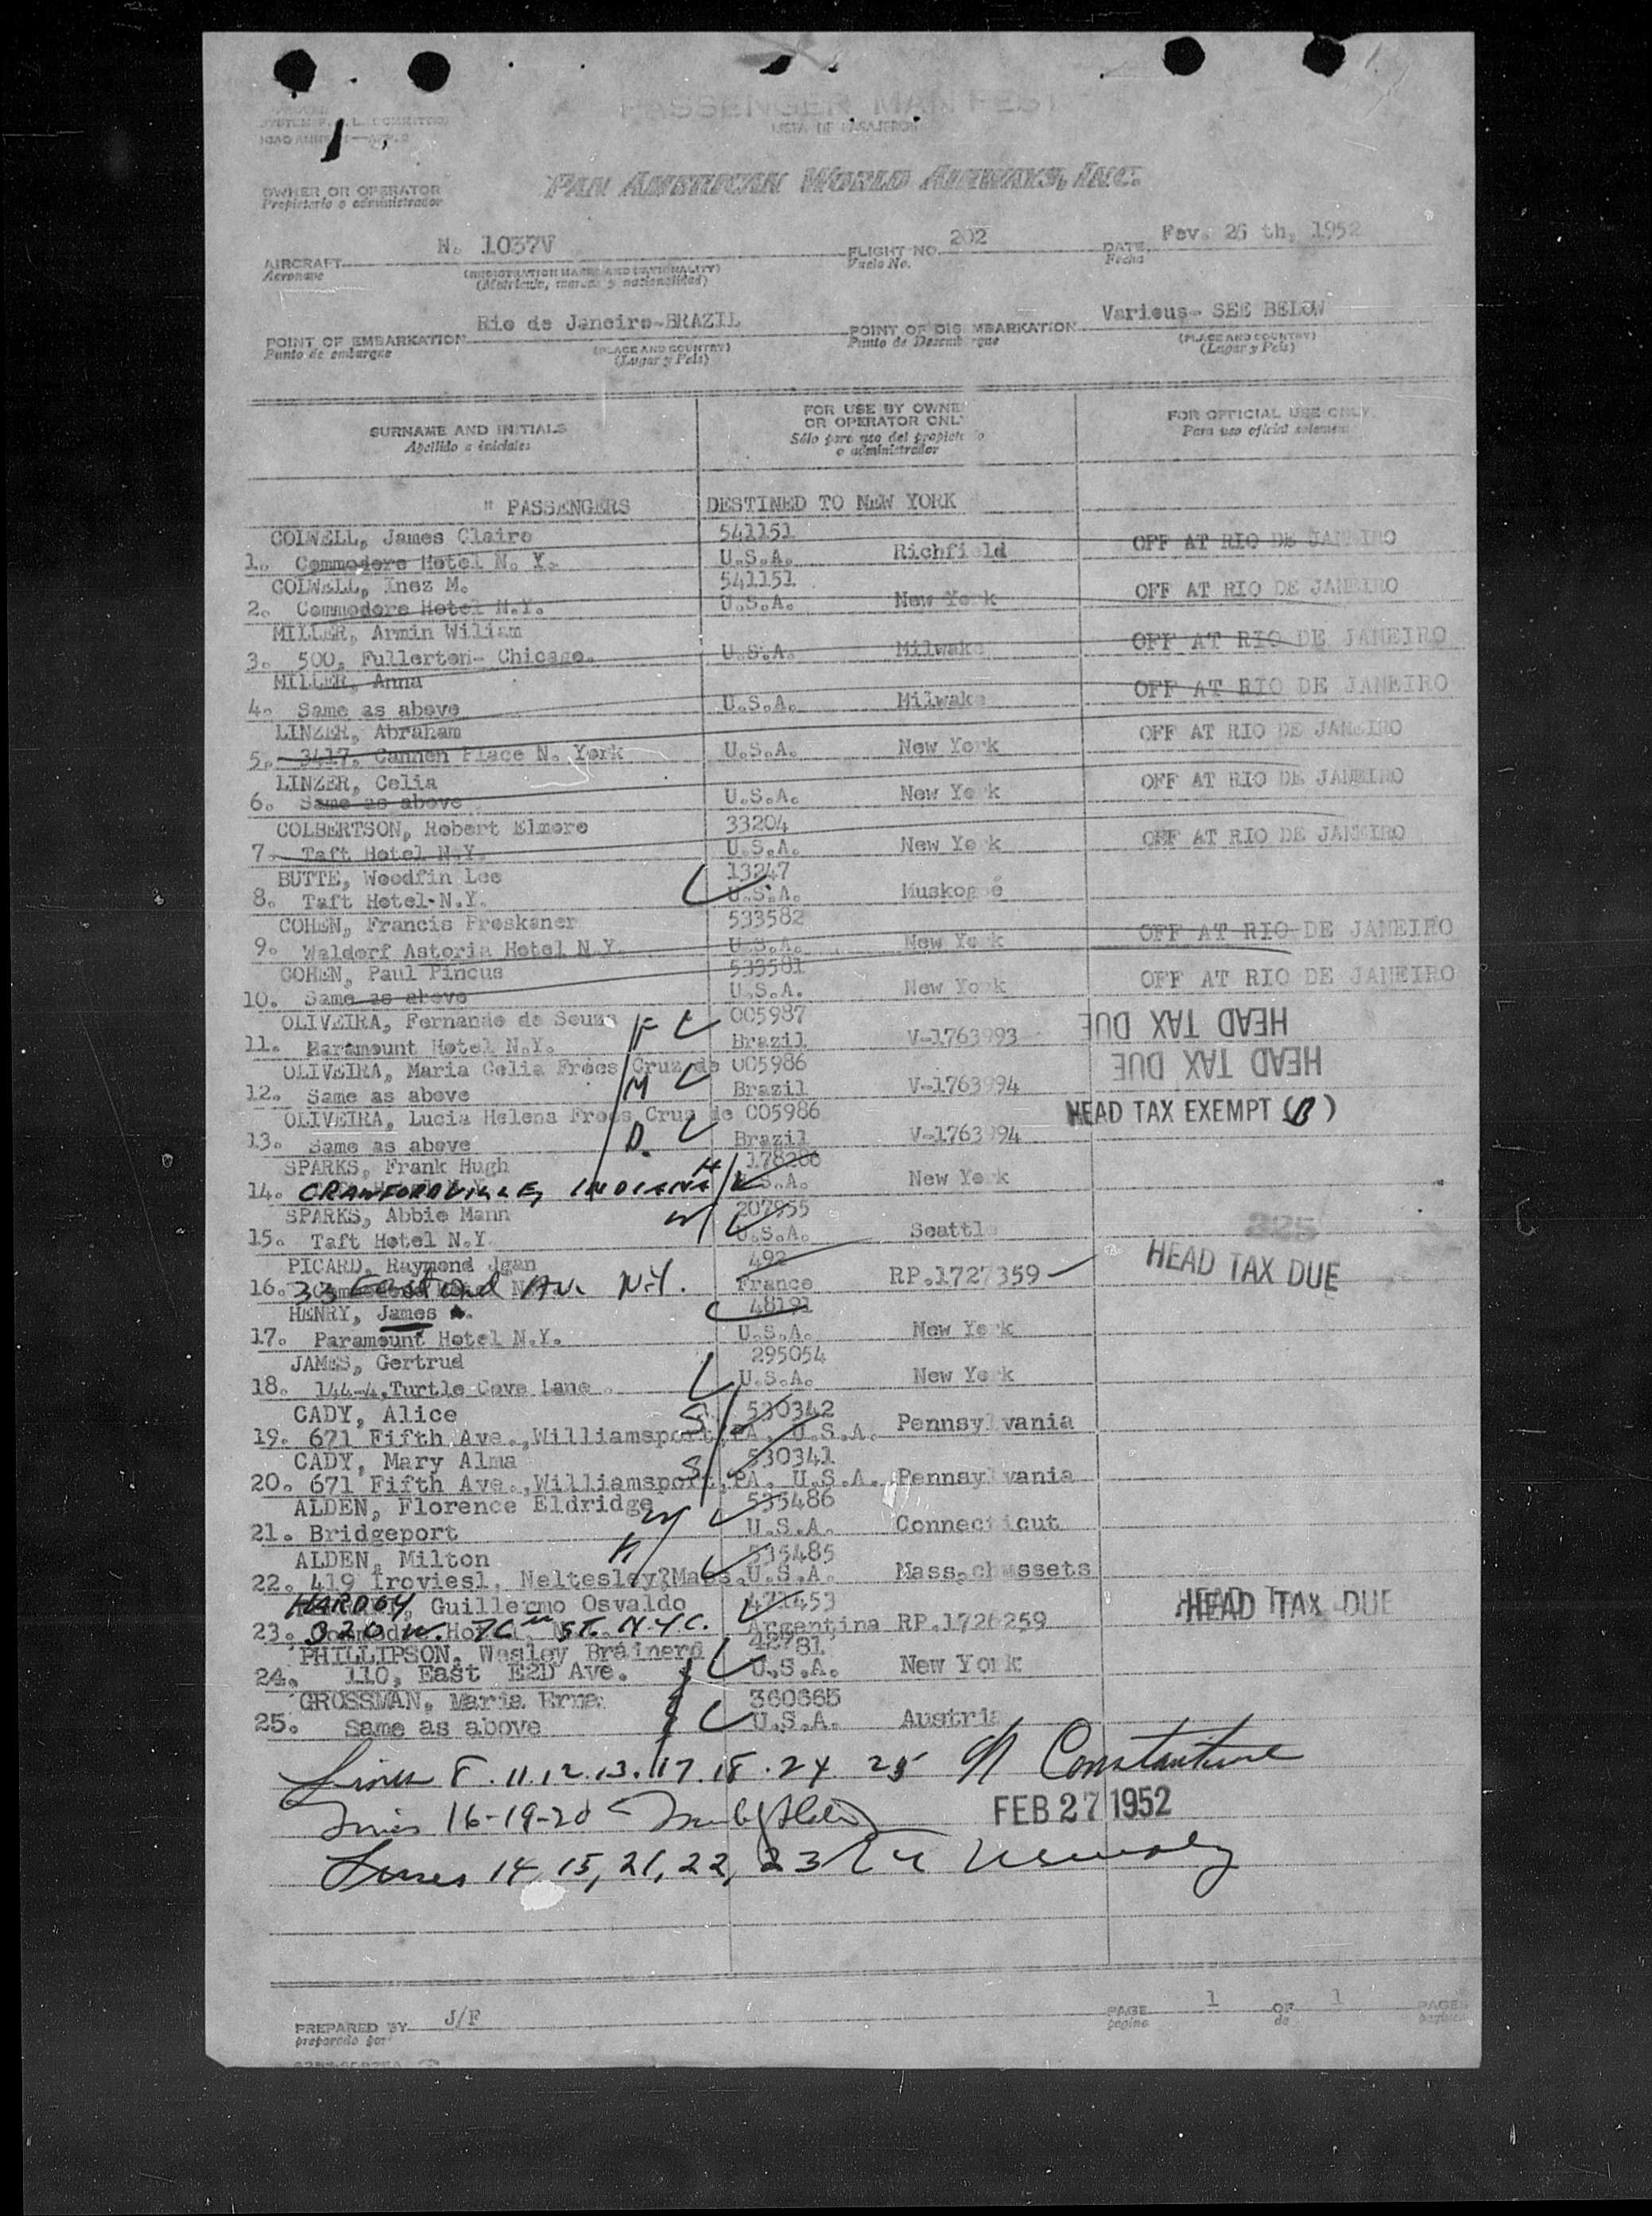 PASSENGER MANIFEST
LISTA DE PASAJEROS
1
PAN AMERICAN WORLD AIRWAYS, INC.
OWNER OR OPERATOR
Propietario o administrador
AIRCRAFT N. 1037V FLIGHT NO. 202 DATE Fev. 26 th, 1952
Aeronave (REGISTRATION MARKS AND NATIONALITY) Vuelo No. Fecha
(Matrícula, marcas y nacionalidad)
POINT OF EMBARKATION Rio de Janeiro-BRAZIL POINT OF DISEMBARKATION Various- SEE BELOW
Punto de embarque (PLACE AND COUNTRY) Punto de Desembarque (PLACE AND COUNTRY)
(Lugar y País) (Lugar y País)
SURNAME AND INITIALS FOR USE BY OWNER OR OPERATOR ONLY FOR OFFICIAL USE ONLY
Apellido e iniciales Sólo para uso del propietario o administrador Para uso oficial solamente
" PASSENGERS DESTINED TO NEW YORK
COLWELL, James Claire 541151
1. Commodore Hotel N. Y. U.S.A. Richfield OFF AT RIO DE JANEIRO
COLWELL, Inez M. 541151
2. Commodore Hotel N.Y. U.S.A. New York OFF AT RIO DE JANEIRO
MILLER, Armin Wiliam
3. 500, Fullerton- Chicago. U.S.A. Milwake OFF AT RIO DE JANEIRO
MILLER, Anna
4. Same as above U.S.A. Milwake OFF AT RIO DE JANEIRO
LINZER, Abraham
5. 3417, Cannen Place N. York U.S.A. New York OFF AT RIO DE JANEIRO
LINZER, Celia
6. Same as above U.S.A. New York OFF AT RIO DE JANEIRO
COLBERTSON, Robert Elmore 33204
7. Taft Hotel N.Y. U.S.A. New York OFF AT RIO DE JANEIRO
BUTTE, Woodfin Lee 13247
8. Taft Hotel-N.Y. U.S.A. Muskogeé
COHEN, Francis Proskaner 533582
9. Waldorf Astoria Hotel N.Y. U.S.A. New York OFF AT RIO DE JANEIRO
COHEN, Paul Pincus 533581
10. Same as above U.S.A. New York OFF AT RIO DE JANEIRO
OLIVEIRA, Fernando de Souza F 005987
11. Paramount Hotel N.Y. Brazil V-1763993 HEAD TAX DUE
OLIVEIRA, Maria Celia Froes Cruz de 005986
12. Same as above M Brazil V-1763994 HEAD TAX DUE
OLIVEIRA, Lucia Helena Froes Cruz de 005986
13. Same as above D. Brazil V-1763994 HEAD TAX EXEMPT (B)
SPARKS, Frank Hugh H 178286
14. CRAWFORDVILLE, INDIANA U.S.A. New York
SPARKS, Abbie Mann W 207955
15. Taft Hotel N.Y. U.S.A. Seattle
225
PICARD, Raymond Jean 492
16. 33 East End Av. N.Y. France RP.1727359 HEAD TAX DUE
HENRY, James A. 48191
17. Paramount Hotel N.Y. U.S.A. New York
JAMES, Gertrud 295054
18. 144-4.Turtle Cove Lane U.S.A. New York
CADY, Alice S 530342
19. 671 Fifth Ave.,Williamsport,PA. U.S.A. Pennsylvania
CADY, Mary Alma S 530341
20. 671 Fifth Ave.,Williamsport,PA. U.S.A. Pennsylvania
ALDEN, Florence Eldridge W 535486
21. Bridgeport U.S.A. Connecticut
ALDEN, Milton H 535485
22. 419 Iroviesl, Neltesley?Mass.U.S.A. Massachussets
HARDOY, Guillermo Osvaldo 471453
23. 320 W. 76th ST. N.Y.C. Argentina RP.1726259 HEAD TAX DUE
PHILLIPSON, Wesley Bráinerd 42781
24. 110, East E2D Ave. U.S.A. New York
GROSSMAN, Maria Erna 360665
25. Same as above U.S.A. Austria
Lines 8.11.12.13.17.18.24 25 Constantine
Lines 16-19-20 FEB 27 1952
Lines 14, 15, 21, 22, 23
PREPARED BY J/F PAGE 1 OF 1 PAGES
preparado por pagina de paginas